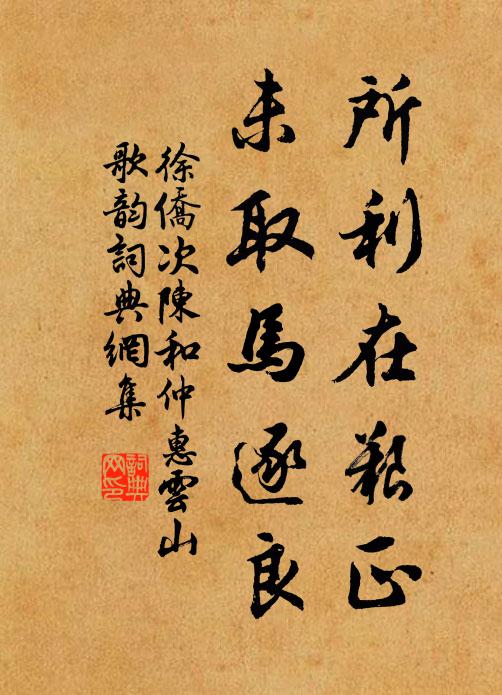 所利在艱正
未取馬逐良
徐僑次陳和仲惠雲山
歌韵詞典網集
詞典网印